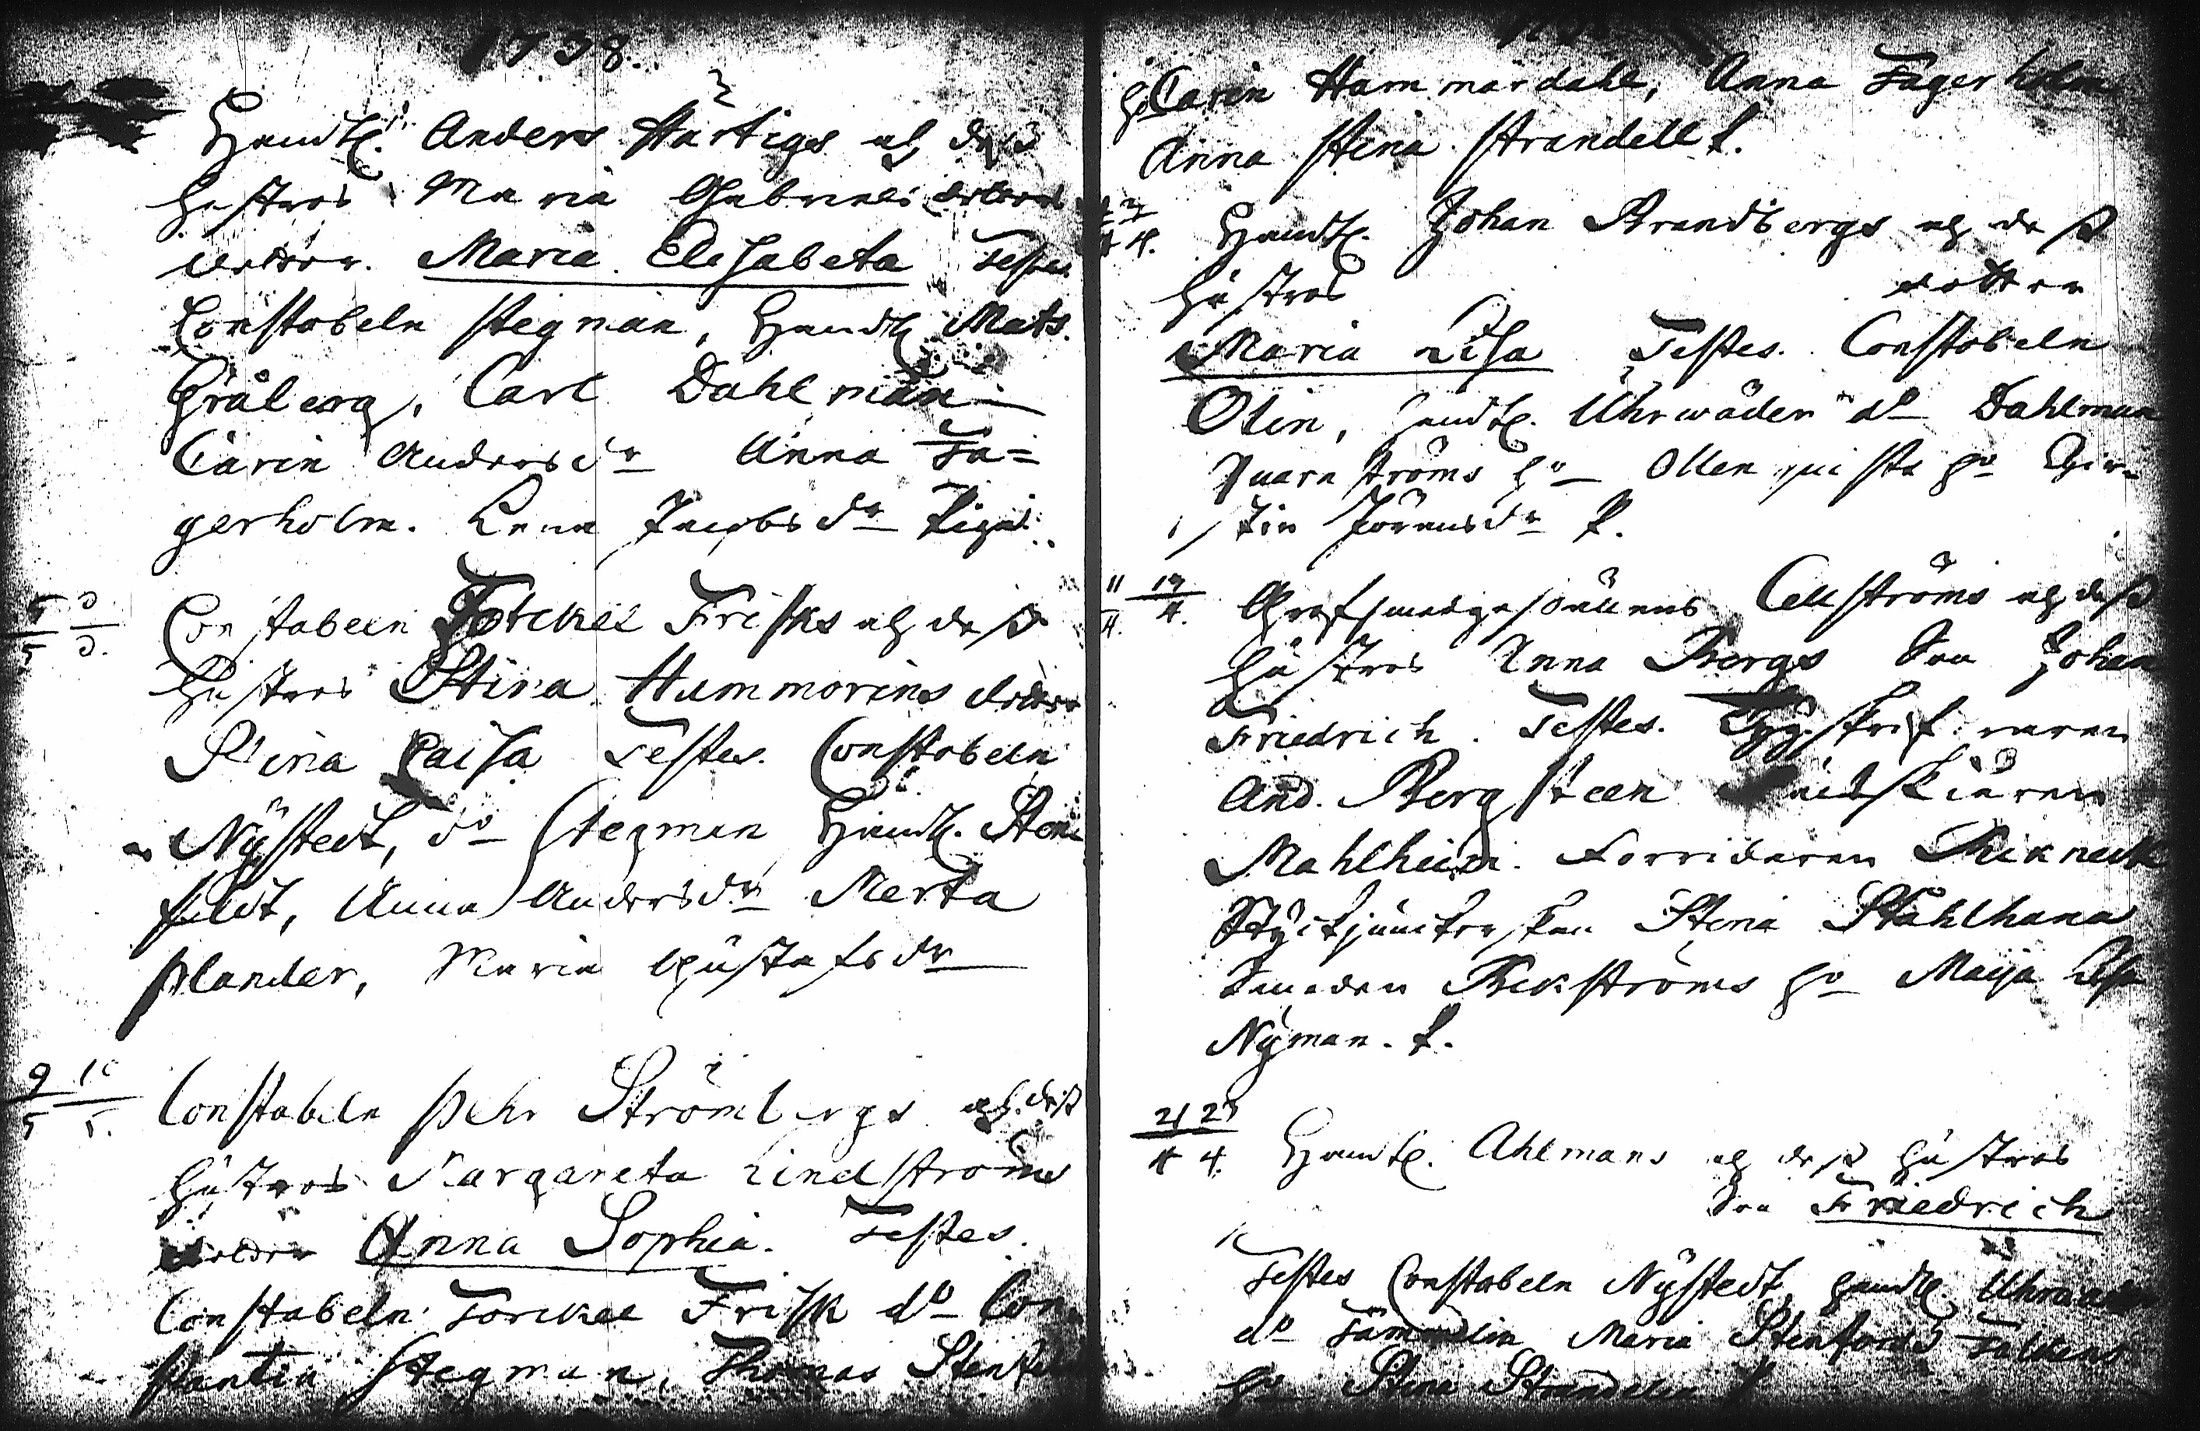 1738.
Handtl. Anders Hartigs och dess
hustrus Maria Gabriels dotters
dotter. Maria Elisabeta Testes
Constabeln Stegman, Handtl. Mats
Gråberg, Carl Dahlman
Carin Andersdr Anna Fa=
gerholm. Lena Jacobsdr Piga.
5 5
Constabeln Torckel Frisks och dess
hustrus Stina Hummorins dotter
Stina Caisa Testes. Constabeln
Nystedt, do Stegman Handtl. Sten
feldt, Anna Andersdr Merta
Plander, Maria Gustafsdr
9 10
5 5.
Constabeln Pehr Strömbergs och dess
hustrus Margareta Lindströms
dotter Anna Sophia. Testes.
Constabeln Torckel Frisk do Con
stantin Stegman, Thomas Stenfel
Carin Hammardahl, Anna Fagerholm
Anna Stina Strandell P.
Handtl. Johan Strandbergs och dess
hustrus dotter
Maria Lisa Testes. Constabeln
Olin, handtl. Uhrwäder do Dahlman
Quarnströms ho Ollenquists ho Chir-
stin Jöransdr P.
11 17
4. 4.
Grofsmedgesällens Cellströms och dess
hustrus Anna Bergs Son Johan
Friedrich. Testes. Tygskrifvaren
And. Bergsteen
Mahlheim. Förridaren Rekneck
Styckjunkerskan Stina Stahlhana
Smeden Bekströms ho Maija Lisa
Nyman. P.
21 23
4 4.
Handtl. Ahlmans och dess hustrus
Son Friedrich
Testes Constabeln Nystedt, handtl. Uhrwäder
do Tammelin Maria Stenfords
ho Stina Strandelin P